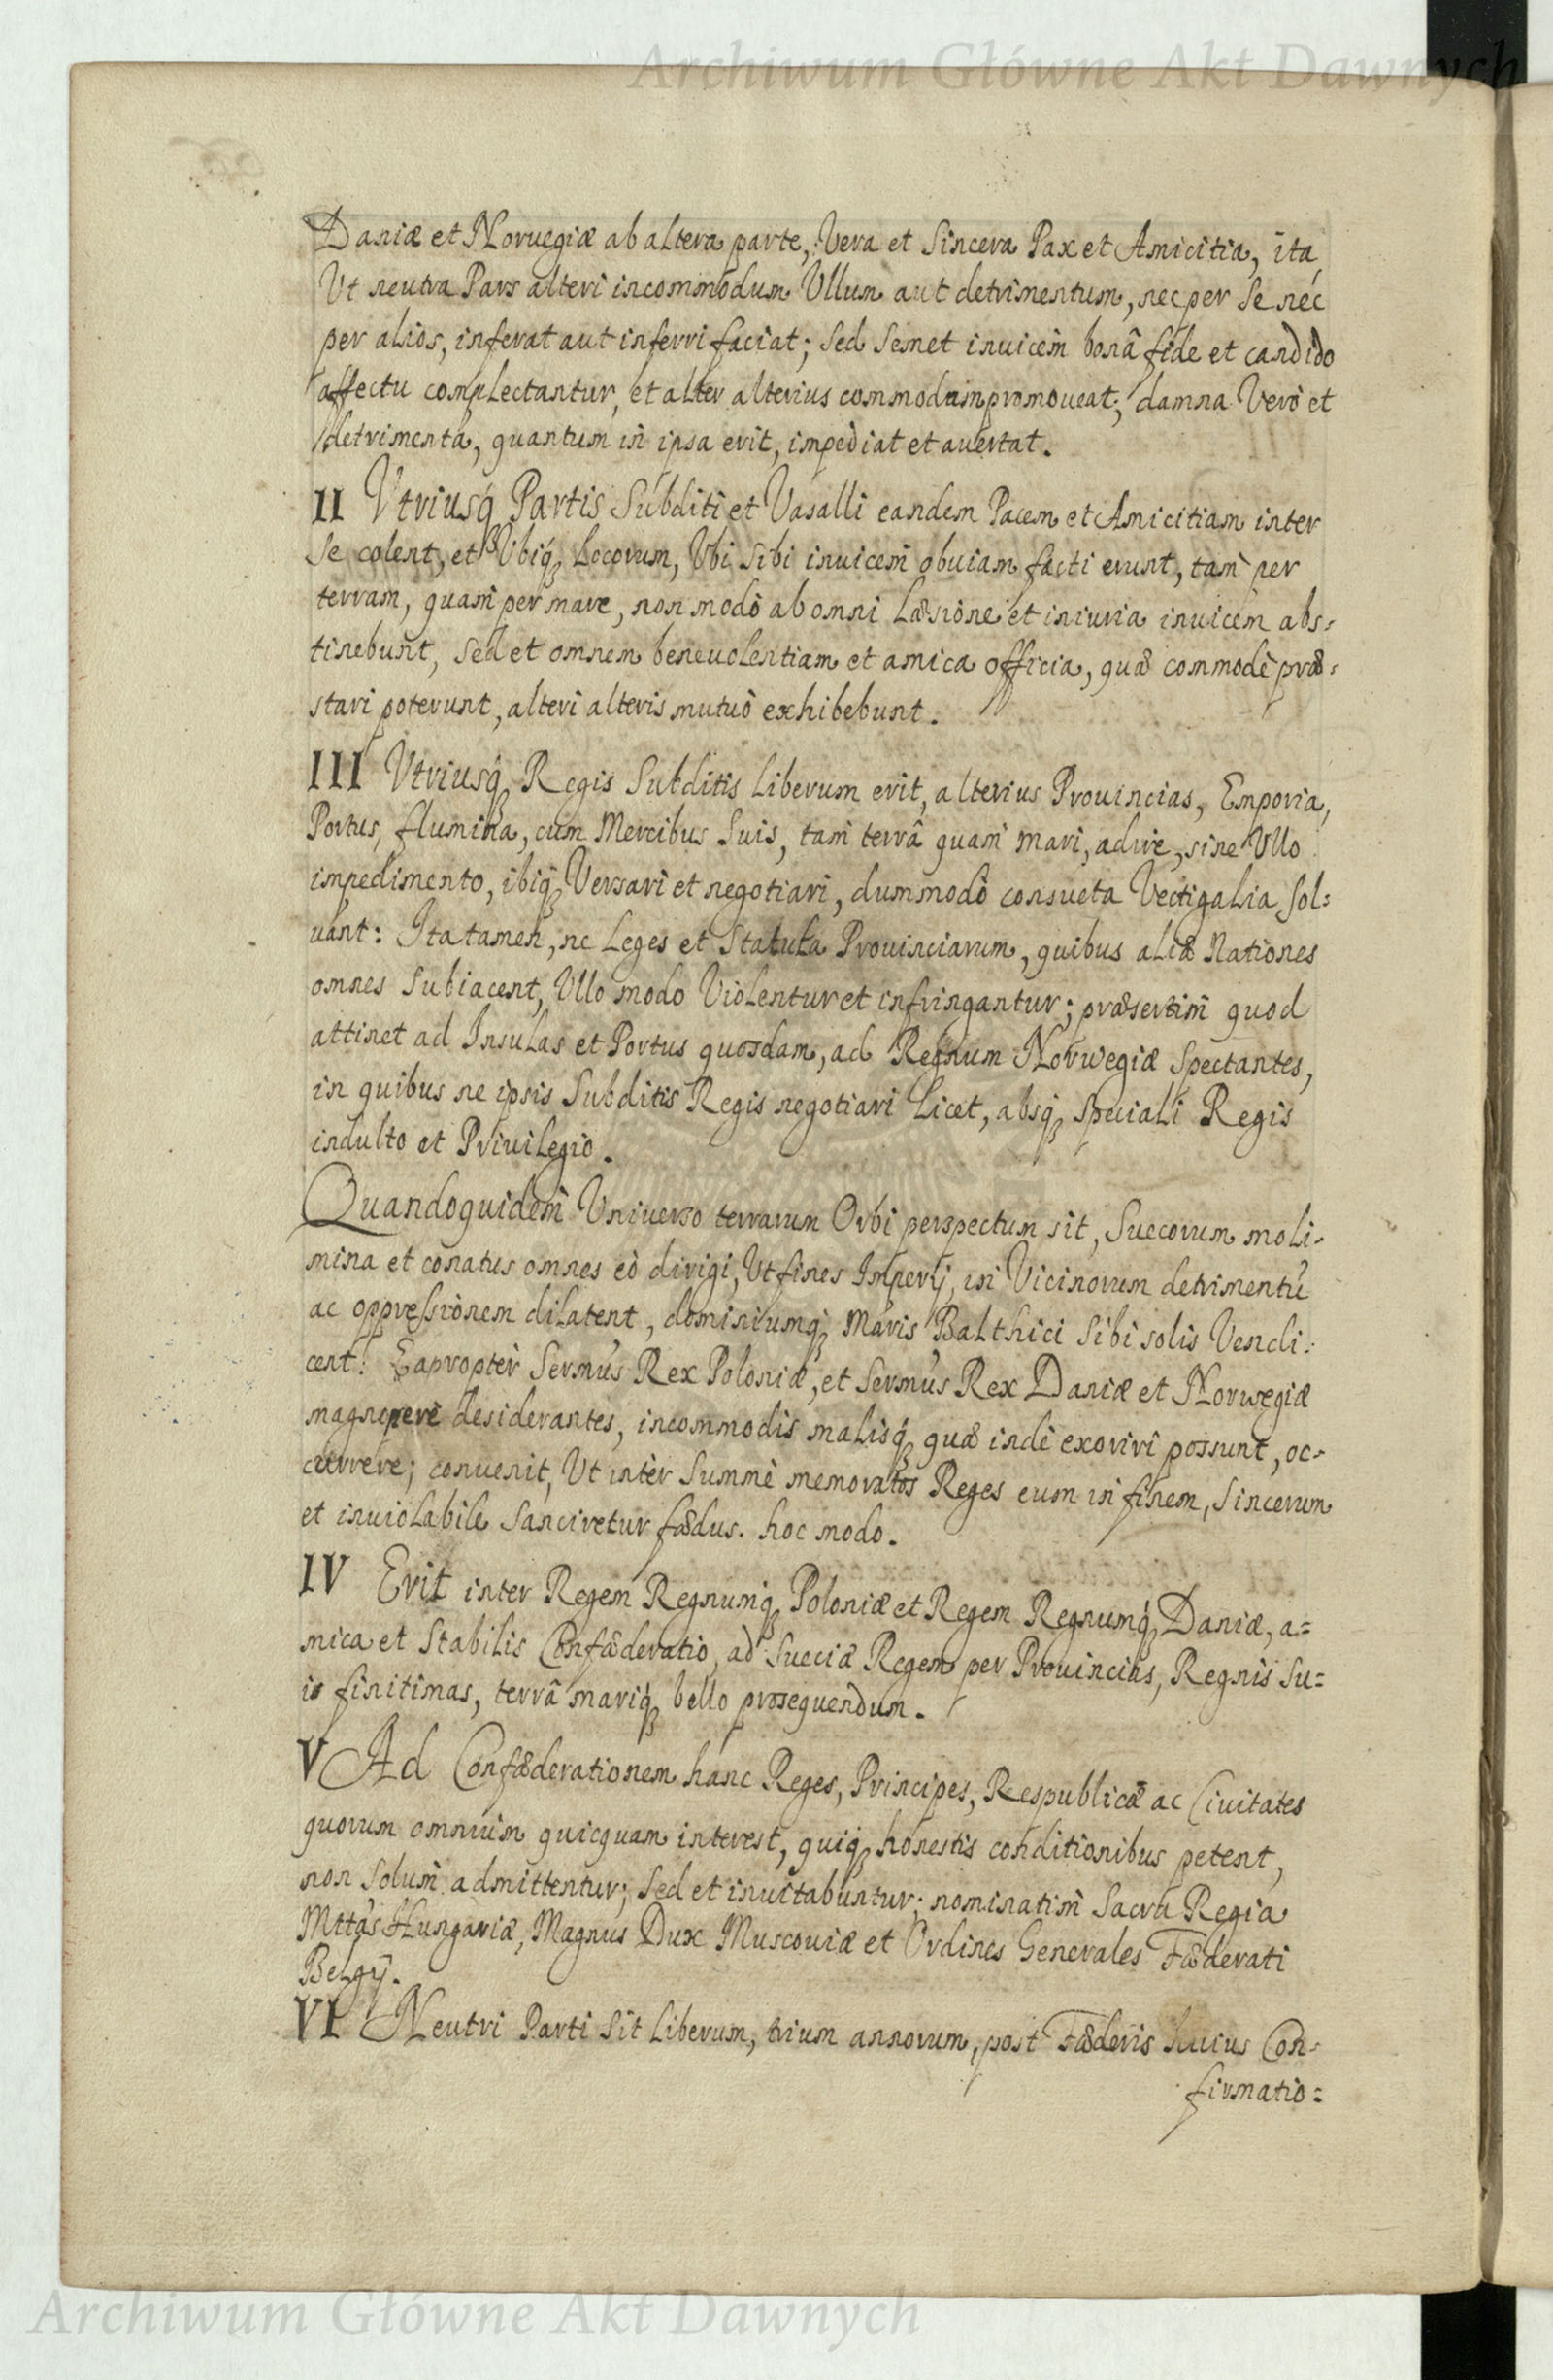 Archiwum Główne Akt Dawnych
Daniæ et Norvegiæ ab altera parte, Vera et Sincera Pax et Amicitia, ita,
Ut neutra Pars alteri incommodum Ullum aut detrimentum, nec per Se nec
per alios, inferat aut inferri faciat; Sed Semet inuicem bonâ fide et candido
affectu complectantur, et alter alterius commodum promoueat; damna Verò et
detrimenta, quantum in ipsa erit, impediat et auertat.
II Vtriusq Partis Subditi et Vasalli eandem Pacem et Amicitiam inter
Se colent, et Ubiq Locorum, Ubi Sibi inuicem obuiam facti erunt, tam per
terram, quam per mare, non modò ab omni Læsione et iniuria inuicem abs-
tinebunt, Sed et omnem beneuolentiam et amica officia, quæ commodè præ-
stari poterunt, alteri alteris mutuò exhibebunt.
III Vtriusq Regis Subditis Liberum erit, alterius Prouincias, Emporia,
Portus, flumina, cum Mercibus Suis, tam terrâ quam mari, adire, sine Ullo
impedimento, ibiq Versari et negotiari, dummodò consueta Vectigalia Sol:
uant: Ita tamen, ne Leges et Statuta Prouinciarum, quibus aliæ Nationes
omnes Subiacent, Ullo modo Violentur et infringantur; præsertim quod
attinet ad Insulas et Portus quosdam, ad Regnum Norwegiæ Spectantes,
in quibus ne ipsis Subditis Regis negotiari Licet, absq speciali Regis
indulto et Priuilegio.
Quandoquidem Vniuerso terrarum Orbi perspectum sit, Suecorum moli-
mina et conatus omnes eò dirigi, Ut fines Imperij, in Vicinorum detrimentũ
ac oppressionem dilatent, dominiumq Maris Balthici Sibi solis Vendi:
cent: Eapropter Sermus Rex Poloniæ, et Sermus Rex Daniæ et Norwegiæ
magnopere desiderantes, incommodis malisq quæ inde exoriri possunt, oc-
currere; conuenit, Ut inter Summè memoratos Reges eum in finem, Sincerum
et inuiolabile Sanciretur fædus. hoc modo.
IV Erit inter Regem Regnumq Poloniæ et Regem Regnumq Daniæ, a=
mica et Stabilis Confæderatio, ad Sueciæ Regem per Prouincias, Regnis Su=
is finitimas, terrâ mariq bello prosequendum.
V Ad Confæderationem hanc Reges, Principes, Respublicæ ac Ciuitates
quorum omnium quicquam interest, quiq honestis conditionibus petent,
non Solum admittentur; Sed et inuitabuntur; nominatim Sacra Regia
Mttas Hungariæ, Magnus Dux Muscouiæ et Ordines Generales Fæderati
Belgij.
VI Neutri Parti Sit Liberum, trium annorum, post Fæderis huius Con-
firmatio:
Archiwum Główne Akt Dawnych